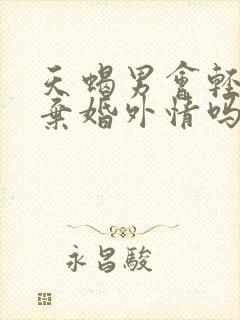 天蝎男會輕
棄婚外情吗
永昌駿